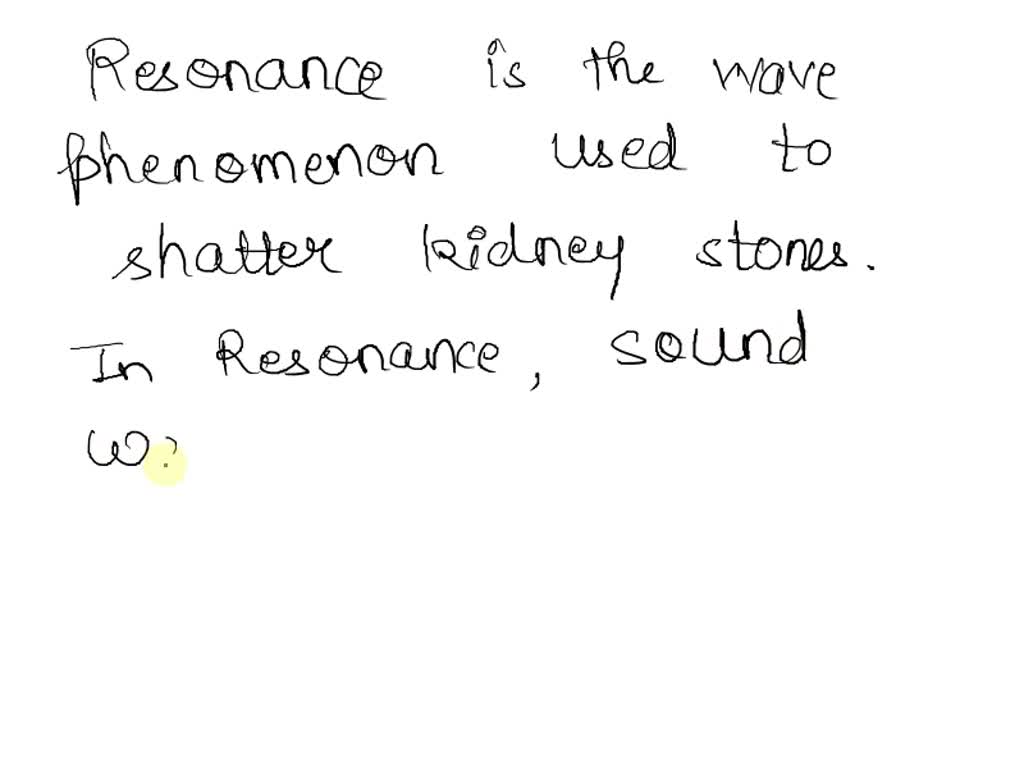 Resonance is the wave
phenomenon used to
shatter kidney stones.
In Resonance, sound